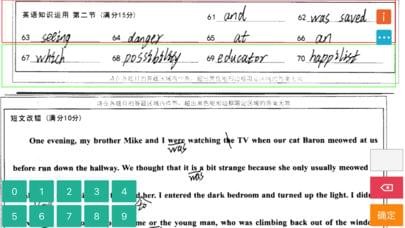 英语知识运用 第二节 (满分15分) 61 and 62 was saved
63 seeing 64 danger 65 at 66 an
67 which 68 possibility 69 educator 70 happilist
请在各题目的答题区域内作答，超出黑色矩形边框限定区域的答案无效
请在各题目的答题区域内作答，超出黑色矩形边框限定区域的答案无效
短文改错 (满分10分)
One evening, my brother Mike and I were watching the TV when our cat Baron meowed at us
was
before run down the hallway. We thought that it is a bit strange because she only usually meowed
was
her. I entered the dark bedroom and turned up the light. I
to
me or the young man, who was climbing back out of the
0 1 2 3 4
5 6 7 8 9
确定